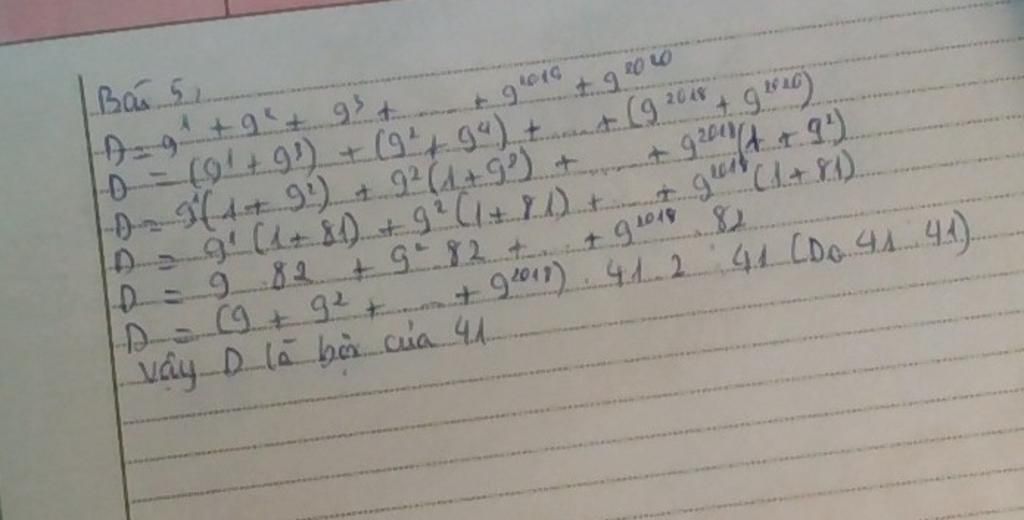 Bài 5,
D = 9¹ + 9² + 9³ + ... + 9²⁰¹⁹ + 9²⁰²⁰
D = (9¹ + 9³) + (9² + 9⁴) + ... + (9²⁰¹⁸ + 9²⁰²⁰)
D = 9¹(1 + 9²) + 9²(1 + 9²) + ... + 9²⁰¹⁸(1 + 9²)
D = 9¹(1 + 81) + 9²(1 + 81) + ... + 9²⁰¹⁸(1 + 81)
D = 9 . 82 + 9² . 82 + ... + 9²⁰¹⁸ . 82
D = (9 + 9² + ... + 9²⁰¹⁸) . 41 . 2 ⋮ 41 (Do 41 ⋮ 41)
Vậy D là bội của 41